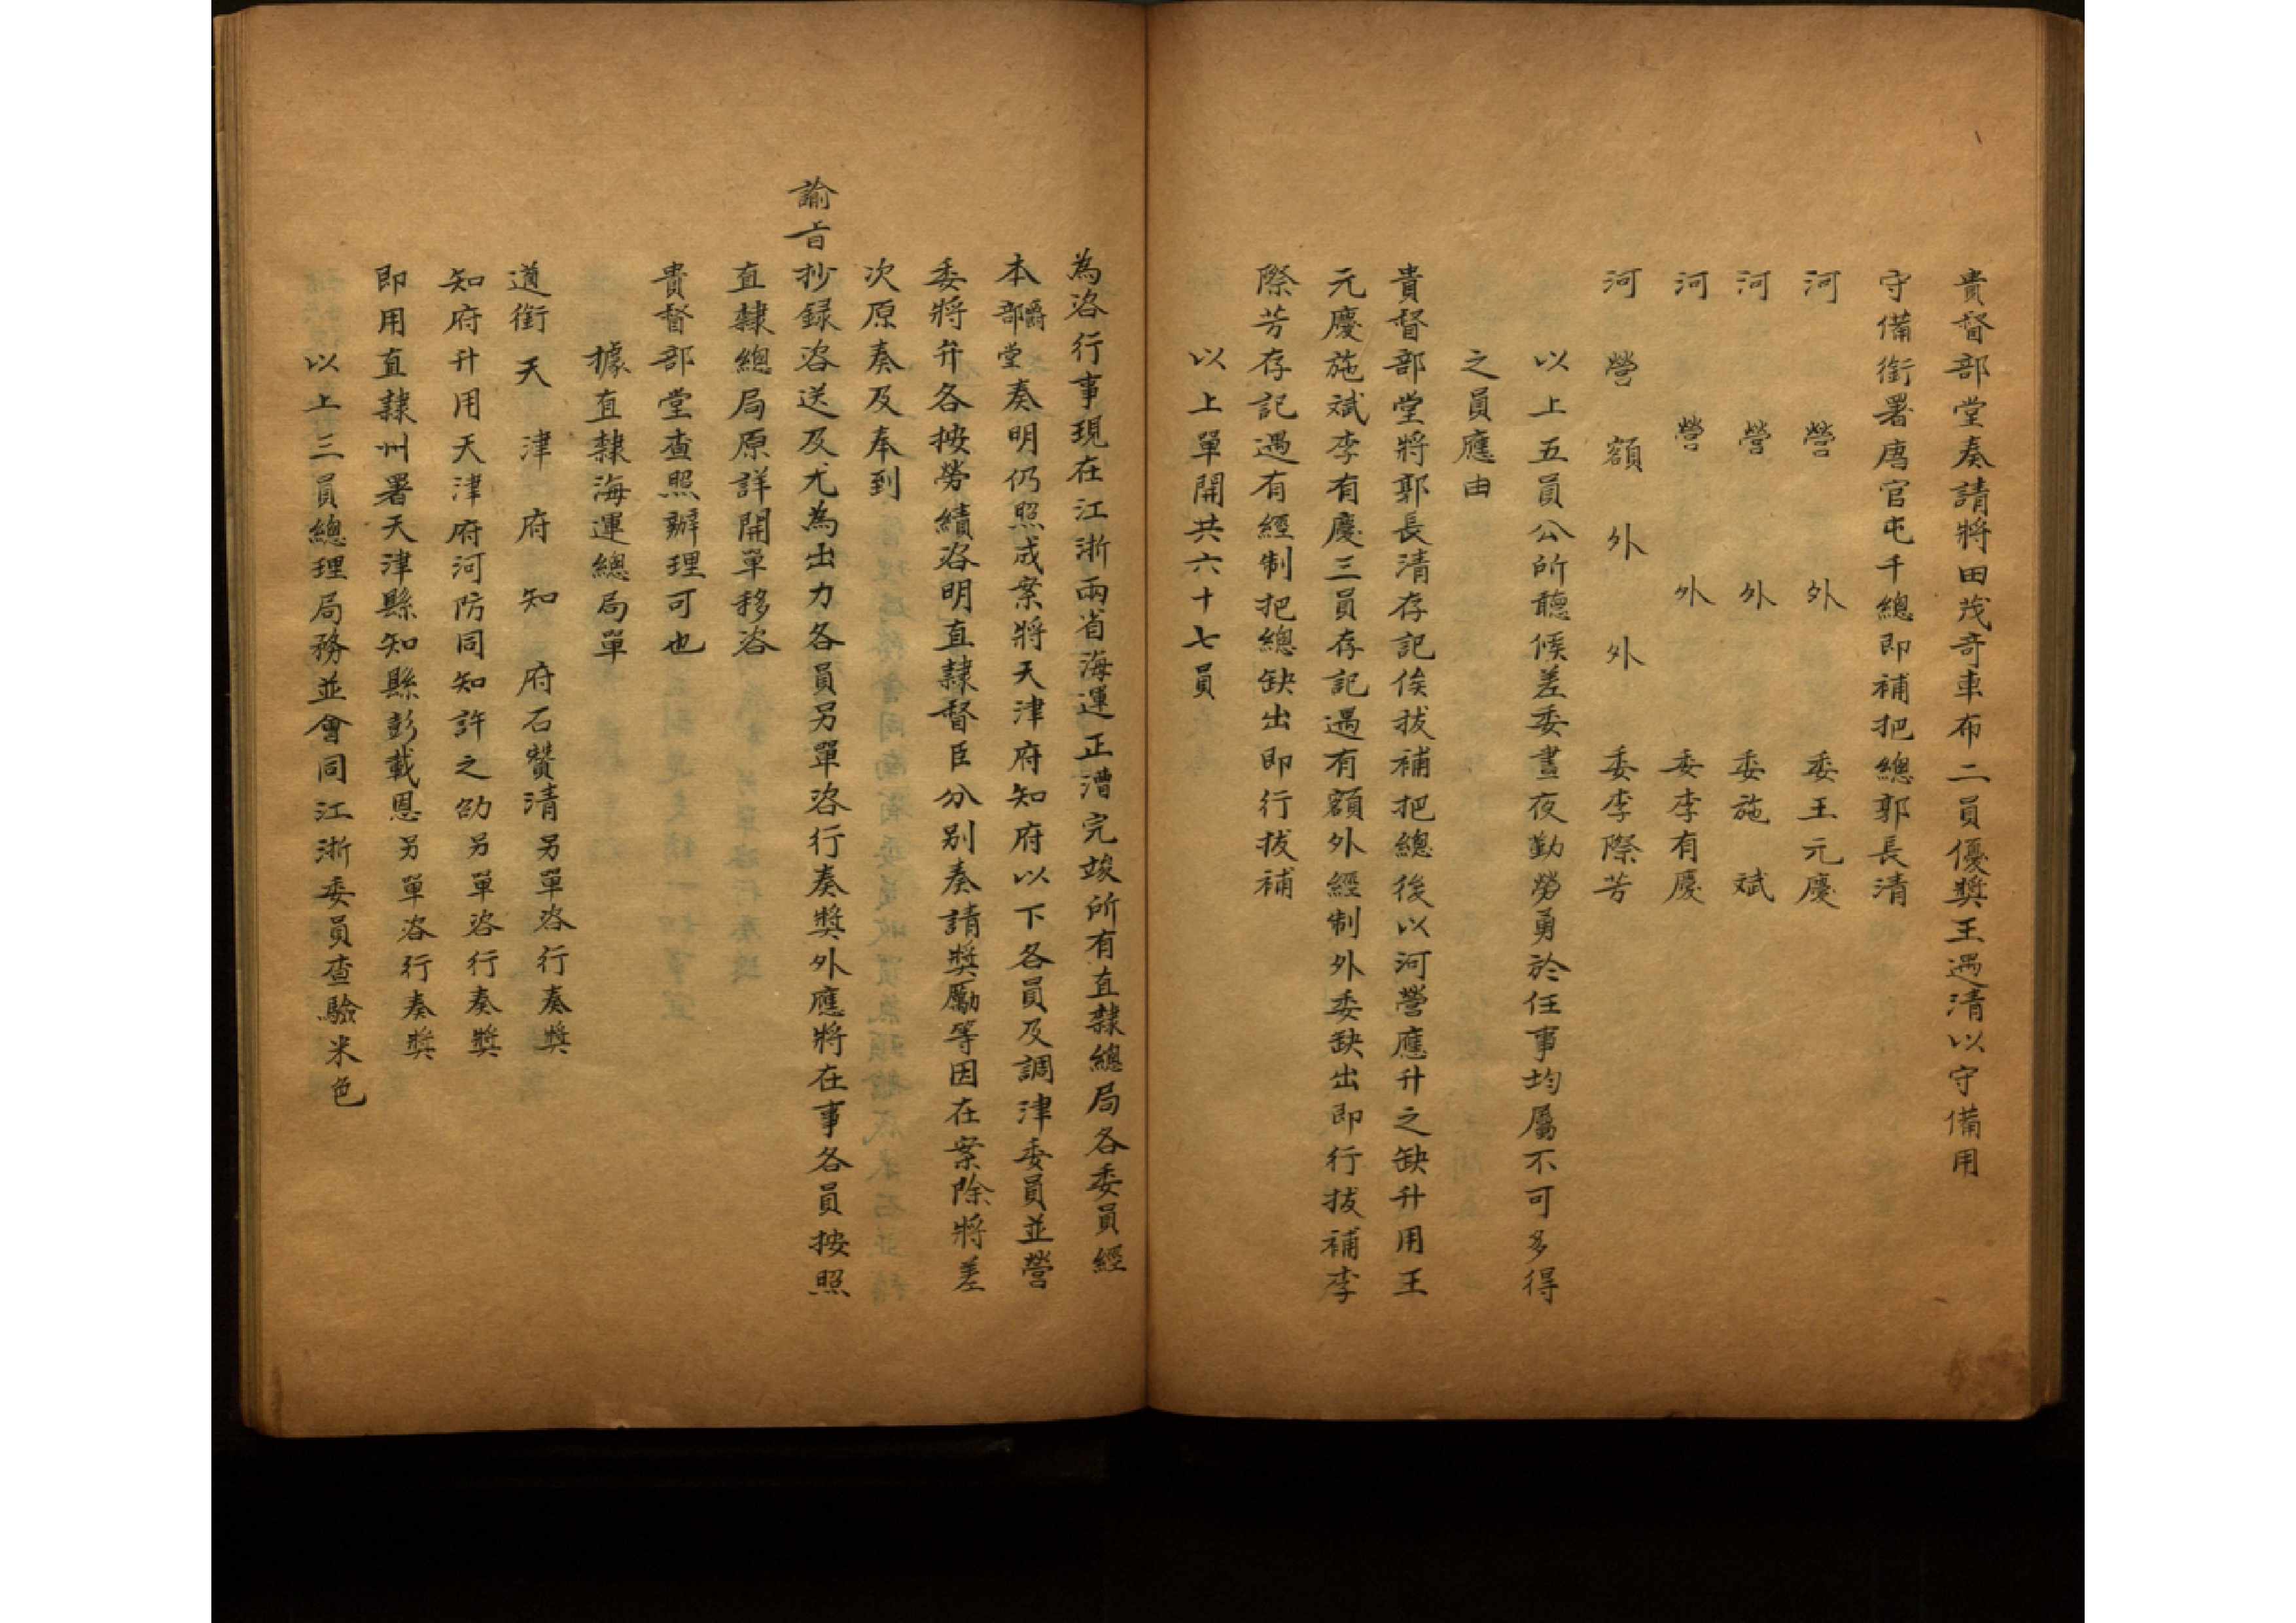 貴督部堂奏請將田茂奇車布二員優獎王遇清以守備用
守備銜署唐官屯千總即補把總郭長清
河營外委王元慶
河營外委施斌
河營外委李有慶
河營額外外委李際芳
以上五員公所聽候差委晝夜勤勞勇於任事均屬不可多得
之員應由
貴督部堂將郭長清存記俟拔補把總後以河營應升之缺升用王
元慶施斌李有慶三員存記遇有額外經制外委缺出即行拔補李
際芳存記遇有經制把總缺出即行拔補
以上單開共六十七員
為咨行事現在江浙兩省海運正漕完竣所有直隸總局各委員經
本爵部堂奏明仍照成案將天津府知府以下各員及調津委員並營
委將弁各按勞績咨明直隸督臣分別奏請獎勵等因在案除將差
次原奏及奉到
諭旨抄録咨送及尤為出力各員另單咨行奏獎外應將在事各員按照
直隸總局原詳開單移咨
貴督部堂查照辦理可也
據直隸海運總局單
道銜天津府知府石贊清另單咨行奏獎
知府升用天津府河防同知許之劭另單咨行奏獎
即用直隸州署天津縣知縣彭載恩另單咨行奏獎
以上三員總理局務並會同江浙委員查驗米色